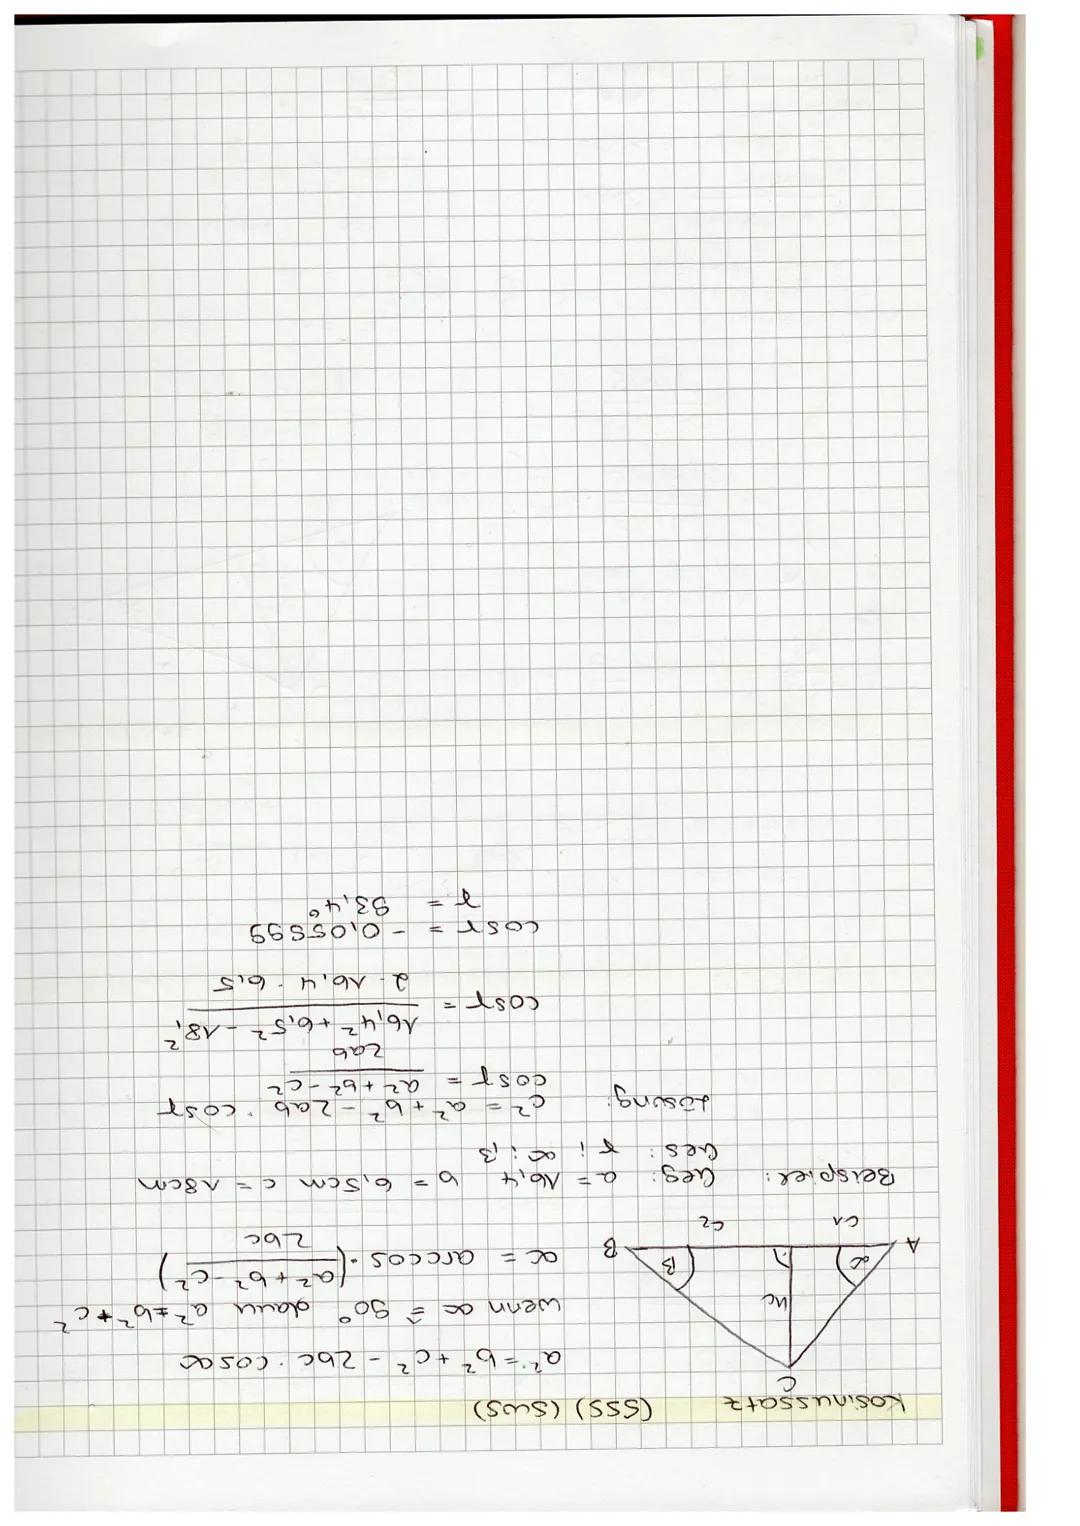 Kosinussatz (SSS) (SWS)
a² = b² + c² - 2bc · cosα
wenn α ≙ 90° dann a² = b² + c²
α = arccos · (a² + b² - c² / 2bc)
C
hc
α
β
A
B
c1
c2
Beispiel: Geg: a = 16,4 b = 6,5cm c = 18cm
Ges: γ ; α ; β
Lösung: c² = a² + b² - 2ab · cosγ
cosγ = a² + b² - c² / 2ab
cosγ = 16,4² + 6,5² - 18,² / 2 · 16,4 · 6,5
cosγ = - 0,05899
γ = 93,4°